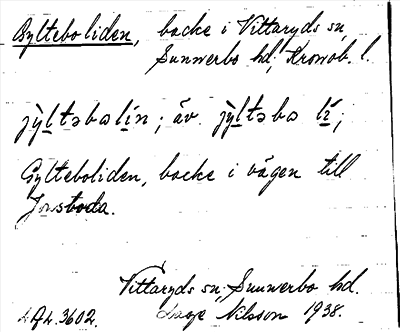 Gylteboliden, backe i Vittaryds sn,
Sunnerbo hd, Kronob. l.
jỳltəbəlín; äv. jỳltəbə lí;
Gylteboliden, backe i vägen till
Vittaryds sn, Sunnerbo hd.
Nilsson 1938.